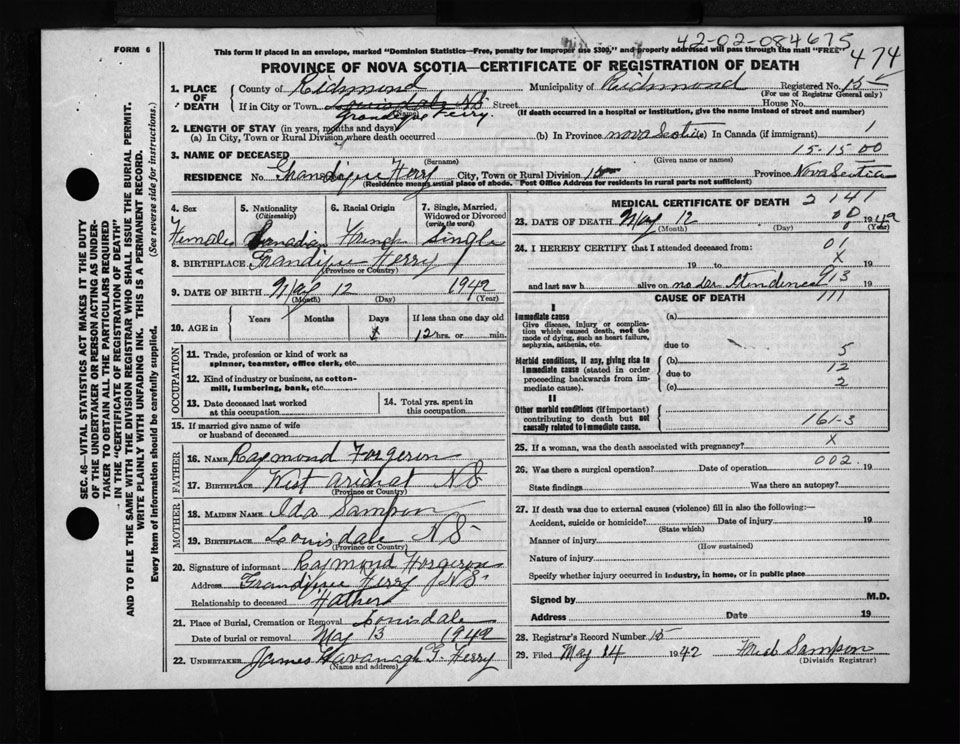 42-02-084675
474
FORM 6
This form if placed in an envelope, marked "Dominion Statistics—Free, penalty for improper use $300," and properly addressed will pass through the mail "FREE"
PROVINCE OF NOVA SCOTIA—CERTIFICATE OF REGISTRATION OF DEATH
SEC. 46—VITAL STATISTICS ACT MAKES IT THE DUTY
OF THE UNDERTAKER OR PERSON ACTING AS UNDER-
TAKER TO OBTAIN ALL THE PARTICULARS REQUIRED
IN THE "CERTIFICATE OF REGISTRATION OF DEATH"
AND TO FILE THE SAME WITH THE DIVISION REGISTRAR WHO SHALL ISSUE THE BURIAL PERMIT.
WRITE PLAINLY WITH UNFADING INK. THIS IS A PERMANENT RECORD.
Every item of information should be carefully supplied. (See reverse side for instructions.)
1. PLACE OF DEATH County of Richmond Municipality of Richmond Registered No. 15
(For use of Registrar General only)
If in City or Town Louisdale NS Street House No.
(Name) (If death occurred in a hospital or institution, give the name instead of street and number)
Grandique Ferry.
2. LENGTH OF STAY (in years, months and days)
(a) In City, Town or Rural Division where death occurred (b) In Province Nova Scotia (c) In Canada (if immigrant) 1
15-15 00
3. NAME OF DECEASED
(Surname) (Given name or names)
RESIDENCE No. Grandique Ferry City, Town or Rural Division 15 Province Nova Scotia
(Residence means usual place of abode. Post Office Address for residents in rural parts not sufficient)
4. Sex Female
5. Nationality (Citizenship) Canadian
6. Racial Origin French
7. Single, Married, Widowed or Divorced (write the word) Single
8. BIRTHPLACE Grandique Ferry
(Province or Country)
9. DATE OF BIRTH May 12 1942
(Month) (Day) (Year)
10. AGE in Years Months Days If less than one day old
12 hrs. or min.
OCCUPATION
11. Trade, profession or kind of work as spinner, teamster, office clerk, etc.
12. Kind of industry or business, as cotton-mill, lumbering, bank, etc.
13. Date deceased last worked at this occupation
14. Total yrs. spent in this occupation
15. If married give name of wife or husband of deceased
FATHER
16. Name Raymond Forgeron
17. Birthplace West Arichat NS
(Province or Country)
MOTHER
18. Maiden Name Ida Sampson
19. Birthplace Louisdale NS
(Province or Country)
20. Signature of informant Raymond Forgeron
Address Grandique Ferry NS
Relationship to deceased Father
21. Place of Burial, Cremation or Removal Louisdale
Date of burial or removal May 13 1942
22. UNDERTAKER James Kavanagh G. Ferry
(Name and address)
MEDICAL CERTIFICATE OF DEATH 2141
23. DATE OF DEATH May 12 1942
(Month) (Day) (Year)
24. I HEREBY CERTIFY that I attended deceased from: 01
19 to X 19
and last saw h alive on no dr attendence 93 19
CAUSE OF DEATH 111
I
Immediate cause (a)
Give disease, injury or complication which caused death, not the mode of dying, such as heart failure, asphyxia, asthenia, etc.
due to 5
Morbid conditions, if any, giving rise to immediate cause (stated in order proceeding backwards from immediate cause).
(b) 12
due to
(c) 2
II
Other morbid conditions (if important) contributing to death but not causally related to immediate cause.
161-3
25. If a woman, was the death associated with pregnancy? X
26. Was there a surgical operation? Date of operation 002 19
State findings Was there an autopsy?
27. If death was due to external causes (violence) fill in also the following:—
Accident, suicide or homicide? Date of injury 19
(State which)
Manner of injury
(How sustained)
Nature of injury
Specify whether injury occurred in industry, in home, or in public place
Signed by M.D.
Address Date 19
28. Registrar's Record Number 15
29. Filed May 14 1942 Sampson
(Division Registrar)